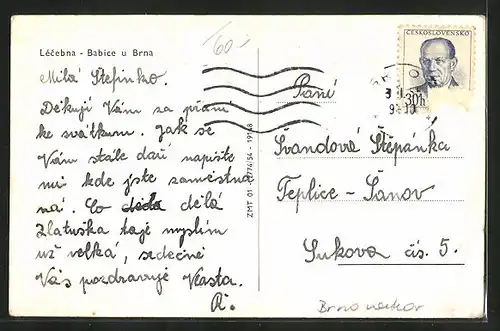 Léčebna - Babice u Brna
60-
Milá Štefinko.
Děkuji Vám za přání
ke svátkum. Jak se
Vám stále daří napište
mi kde jste zaměstna
ná. Co dělá
Zlatuška taji myslím
už velká, srdečně
Vás pozdravuje Vlasta.
R.
ZMT 01
ČESKOSLOVENSKO
30h
Paní
Švandová Štěpánka
Teplice - Šanov
Sukova čís. 5.
Brno venkov